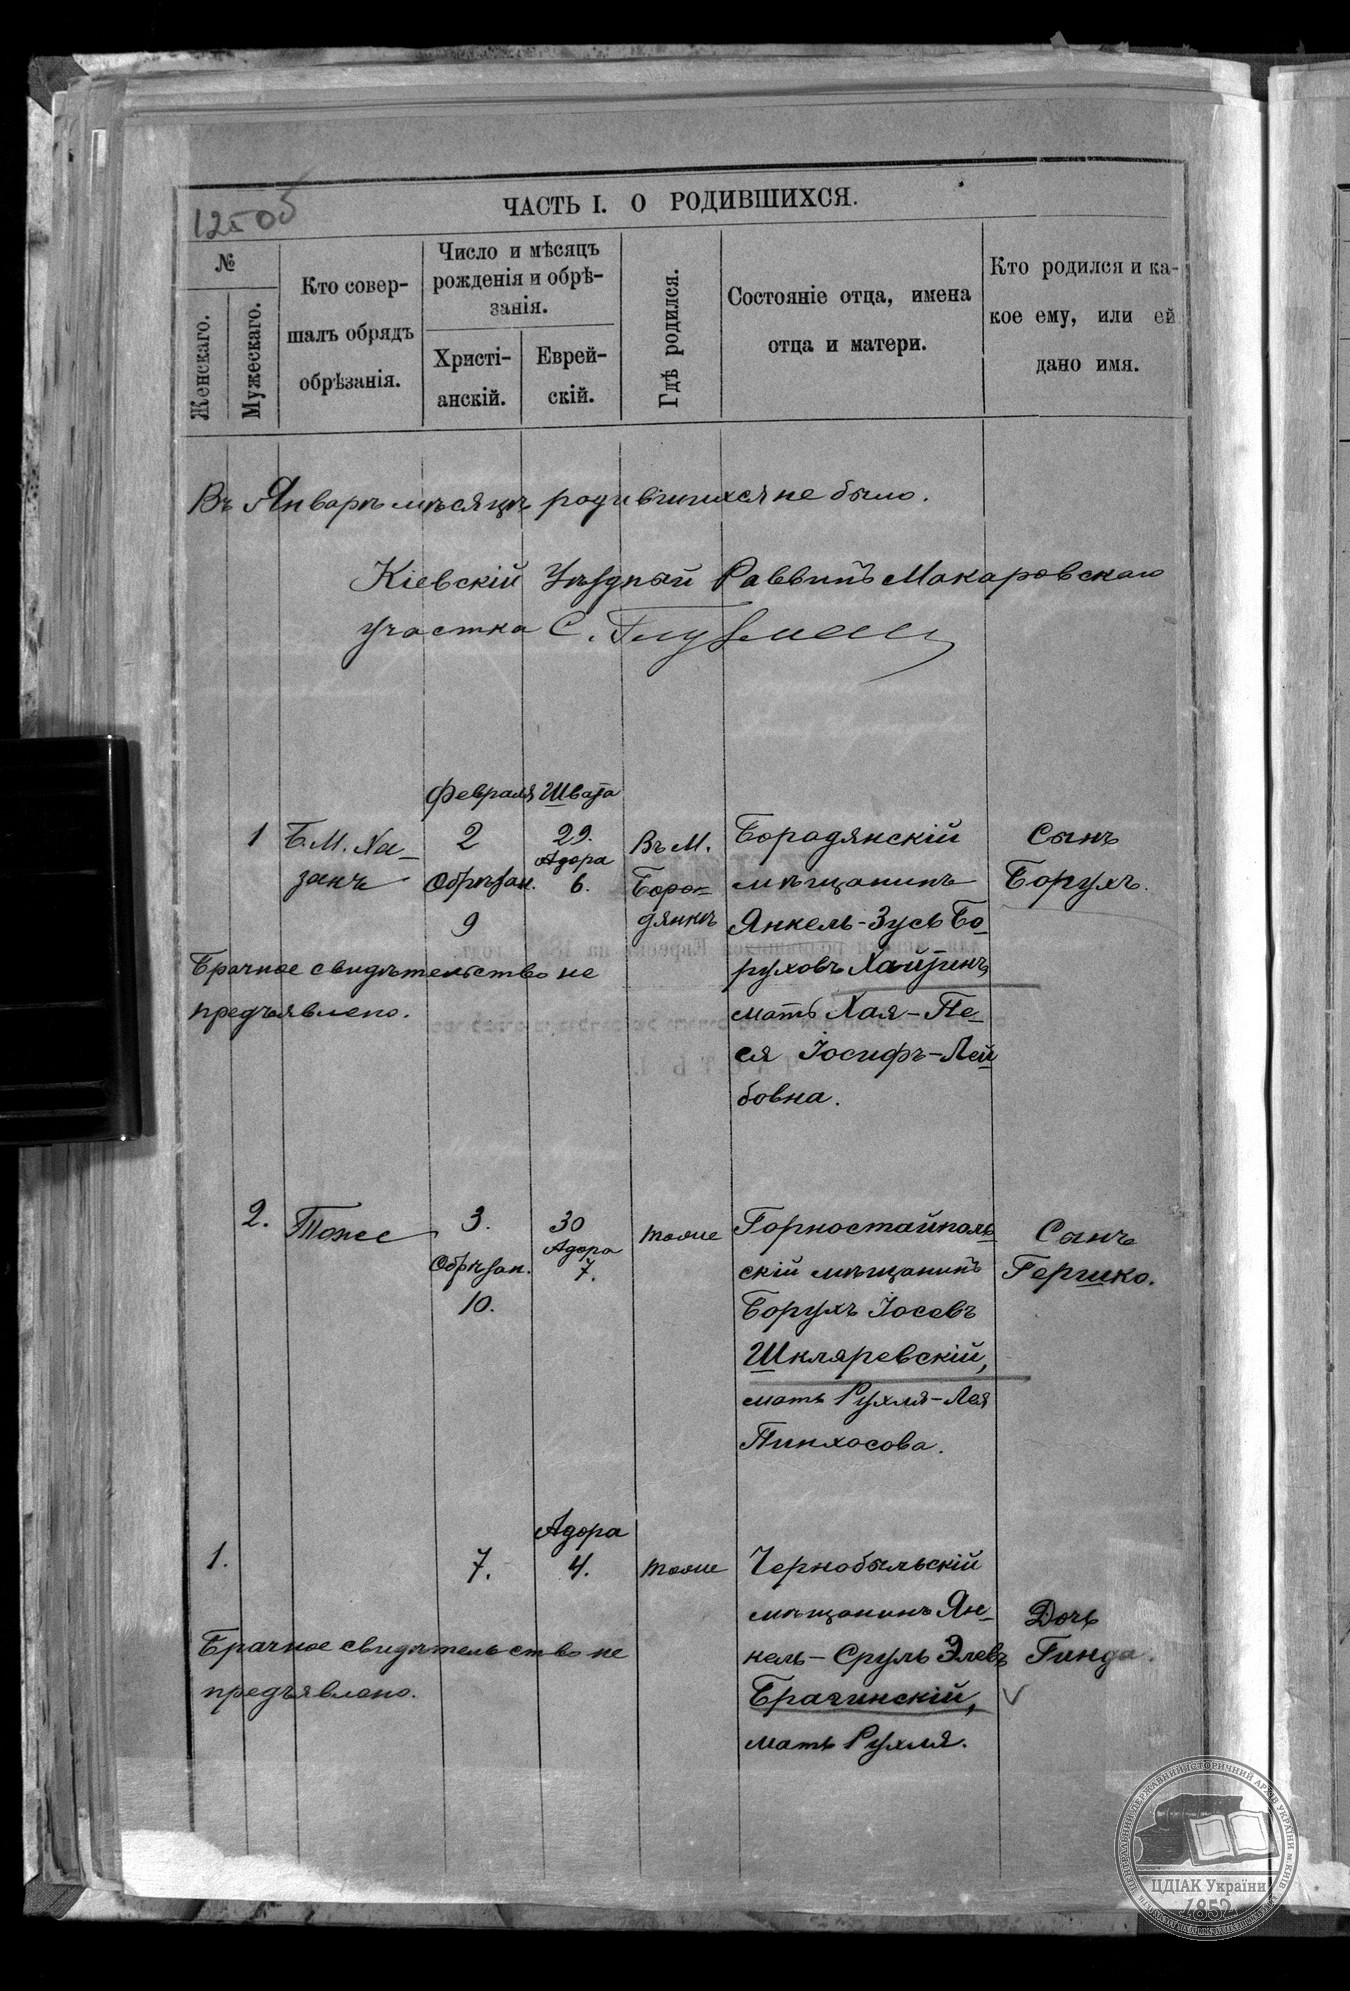 12505
ЧАСТЬ I. О РОДИВШИХСЯ.
№
Женскаго.
Мужескаго.
Кто совер-
шалъ обрядъ
обрѣзанія.
Число и мѣсяцъ
рожденія и обрѣ-
занія.
Христі-
анскій.
Еврей-
скій.
Гдѣ родился.
Состояніе отца, имена
отца и матери.
Кто родился и ка-
кое ему, или ей
дано имя.
Въ Январѣ мѣсяцѣ родившихся не было.
Кіевскій Уѣздный Раввинъ Макаровскаго
участка С.
Февраля Швата
1
Б. М. Ха-
занъ
2
Обрѣзан.
9
29.
Адора
6.
Въ М.
Боро-
дянкѣ
Бородянскій
мѣщанинъ
Янкель-Зусь Бо-
руховъ Хайзинъ,
мать Хая-Пе-
ся Іосифъ-Лей
бовна.
Сынъ
Борухъ.
Брачное свидѣтельство не
предъявлено.
2.
Тоже
3.
Обрѣзан.
10.
30
Адора
7.
тоже
Горностайполь
скій мѣщанинъ
Борухъ Іосевъ
Шкляревскій,
мать Рухля-Лея
Пинхосова.
Сынъ
Гершко.
Адора
1.
7.
4.
тоже
Чернобыльскій
мѣщанинъ Ян-
кель-Сруль Элевъ
Брагинскій,
мать Рухля.
Дочь
Гинда.
Брачное свидѣтельство не
предъявлено.
ЦЕНТРАЛЬНИЙ ДЕРЖАВНИЙ ІСТОРИЧНИЙ АРХІВ УКРАЇНИ, м.КИЇВ
ЦДІАК України
1852